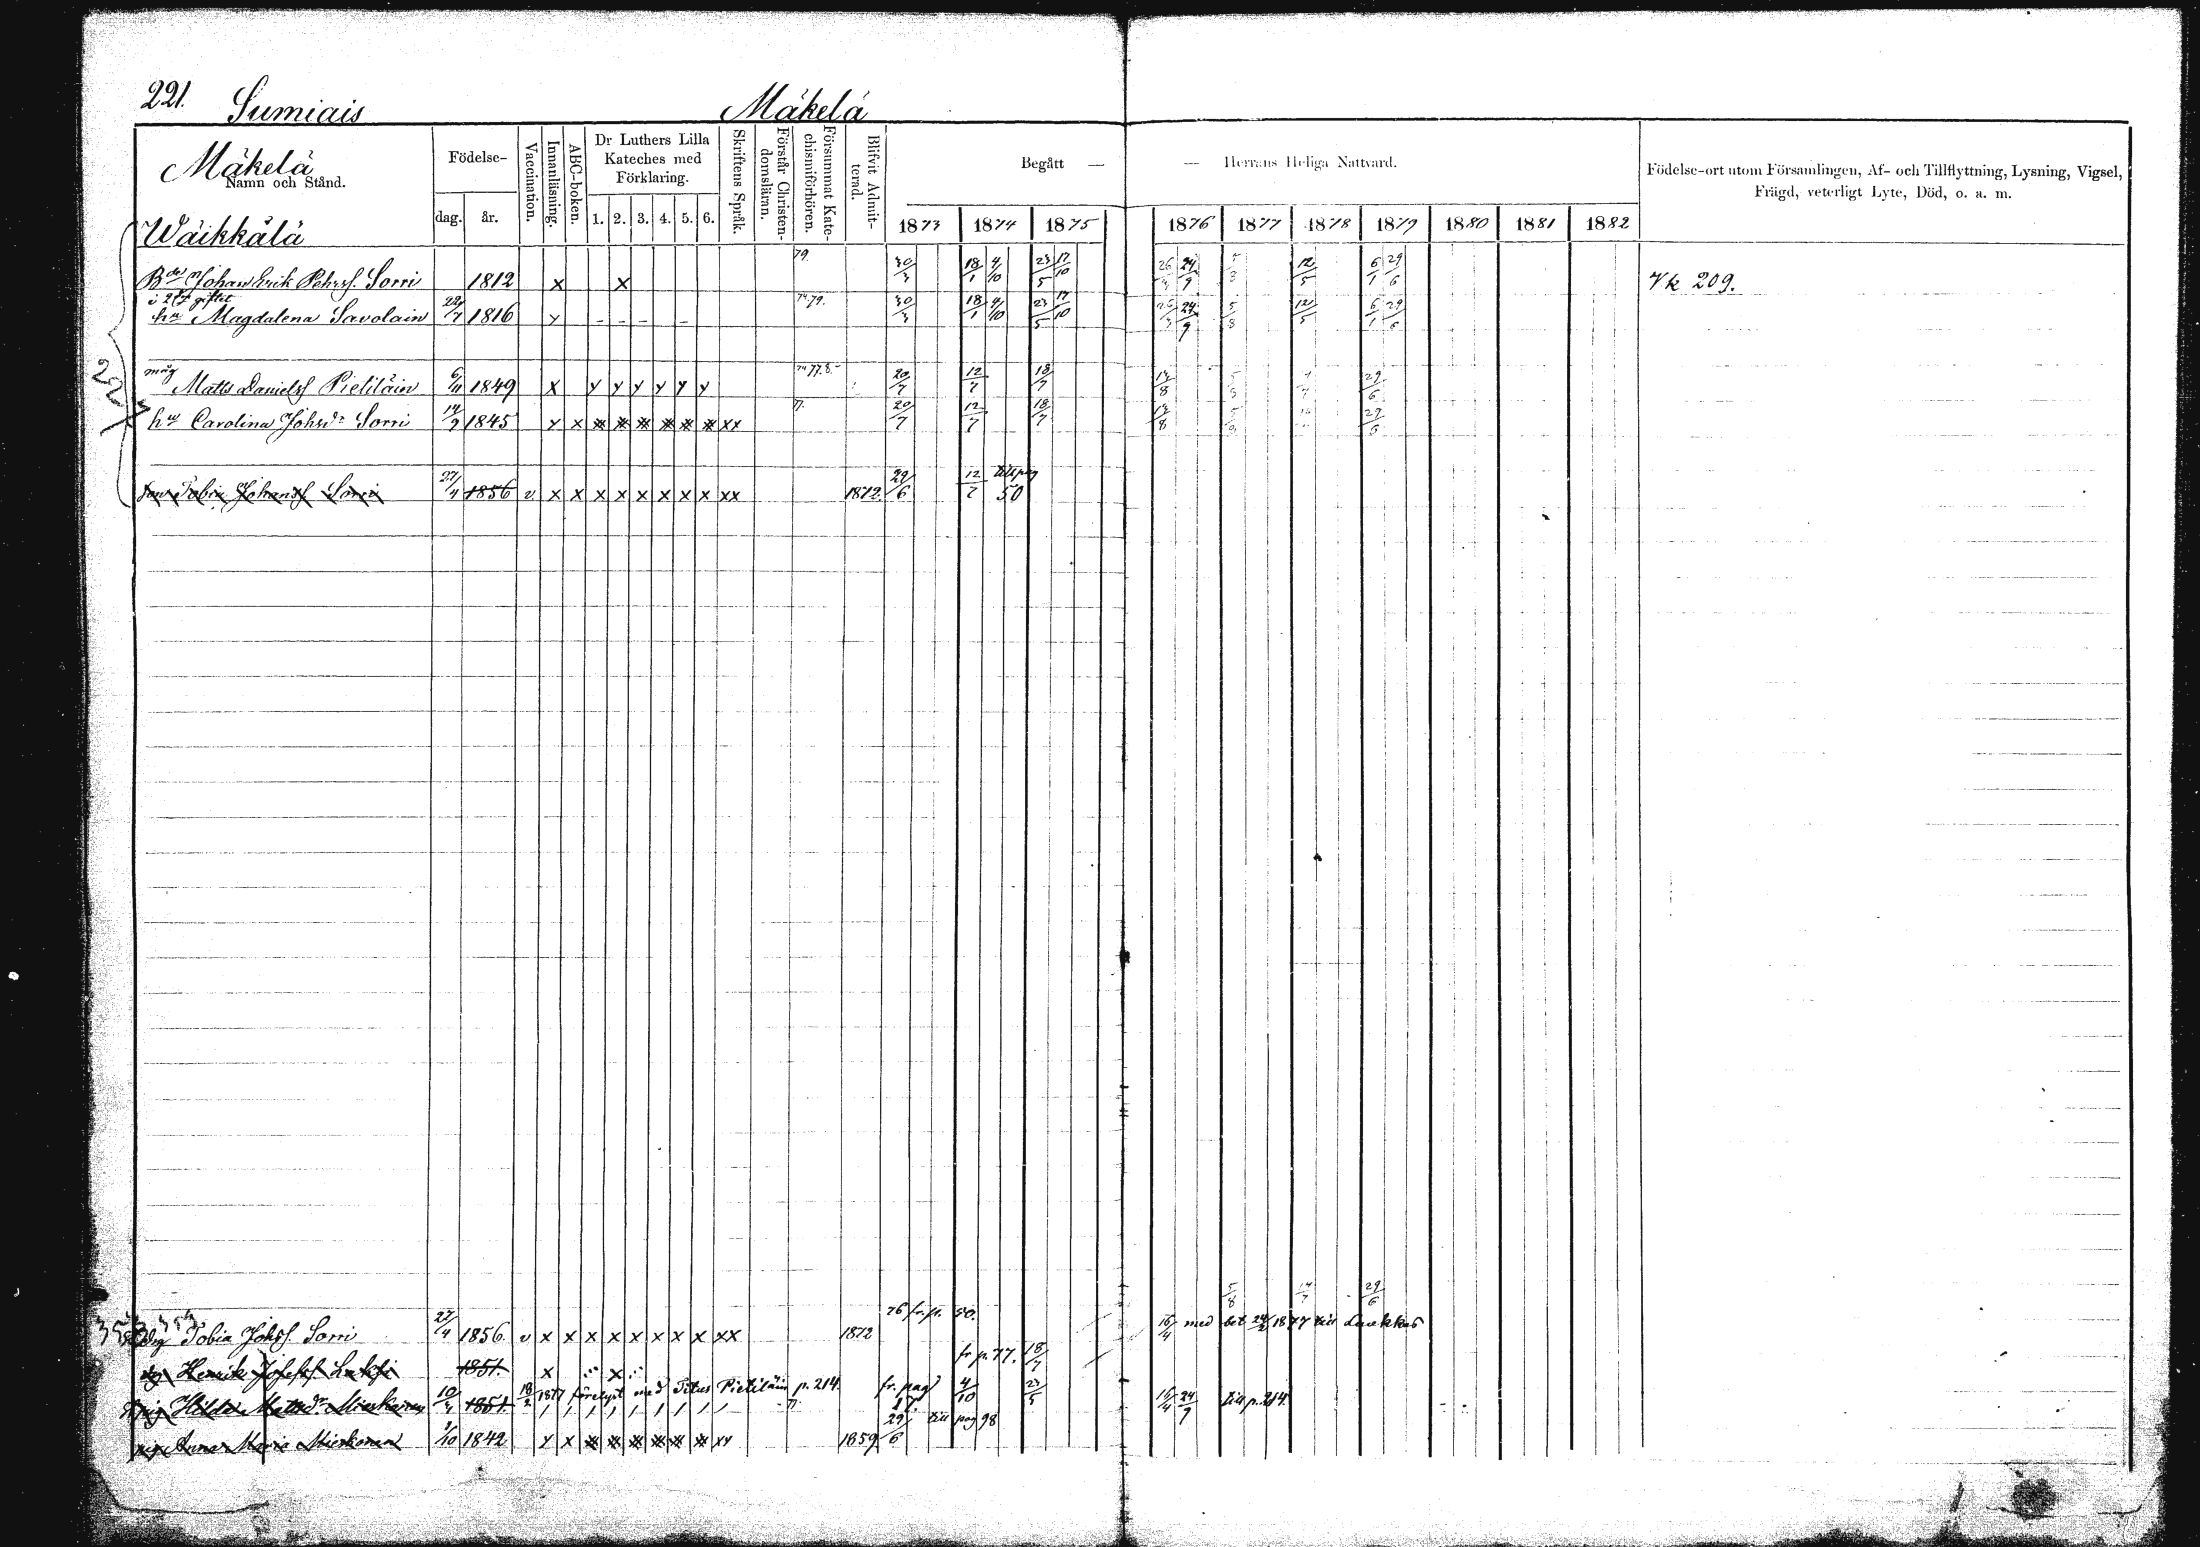 221. Sumiais Mäkelä
Mäkelä
Namn och Stånd.
Födelse-
dag. år.
Vaccination.
Innanläsning.
ABC-boken.
Dr Luthers Lilla
Kateches med
Förklaring.
1. 2. 3. 4. 5. 6.
Skriftens Språk.
Förstår Christen-
domsläran.
Försummat Kate-
chismiförhören.
Blifvit Admit-
terad.
Begått — — Herrans Heliga Nattvard.
1873 1874 1875 1876 1877 1878 1879 1880 1881 1882
Födelse-ort utom Församlingen, Af- och Tillflyttning, Lysning, Vigsel,
Frägd, veterligt Lyte, Död, o. a. m.
Wäikkälä
79.
Johan Erik Pehrss. Sorri 1812 x x 30/3 18/1 4/10 23/5 17/10 26/3 24/9 5/8 12/5 6/1 29/6 Vk 209.
i 2 giftet
hu Magdalena Savolain 22/7 1816 y - - - - 79. 30/3 18/1 4/10 23/5 17/10 26/3 24/9 5/8 12/5 6/1 29/6
227
måg
Matts Danielss Pietiläin 6/11 1849 x y y y y y y 77.8. 20/7 12/7 18/7 14/8 29/6
hu Carolina Johsdr Sorri 14/9 1845 y x x x x x x x xx 77. 20/7 12/7 18/7 14/8 29/6
son Tobia Johanss Sorri 27/4 1856 v x x x x x x x x xx 1872 29/6 12/7 till pag 50
5/8 14/7 29/6
76 fr. p. 50.
353
Tobia Johss. Sorri 27/4 1856. v x x x x x x x x xx 1872 16/4 med bet 24/2 1877 till Laukkas
Henrik Josefss Lahti 1851. x x fr p. 77. 18/7
18/2 1877 förelyst med Titus Pietiläin p. 214. fr. pag 17. 4/10 23/5 16/4 24/9 till p. 214.
pig Hilda Mattsdr Mieskonen 10/4 1851. 77.
pig Anna Maria Mieskonen 1/10 1842 y x x x x x x x xy 1859 29/6 till pag 98